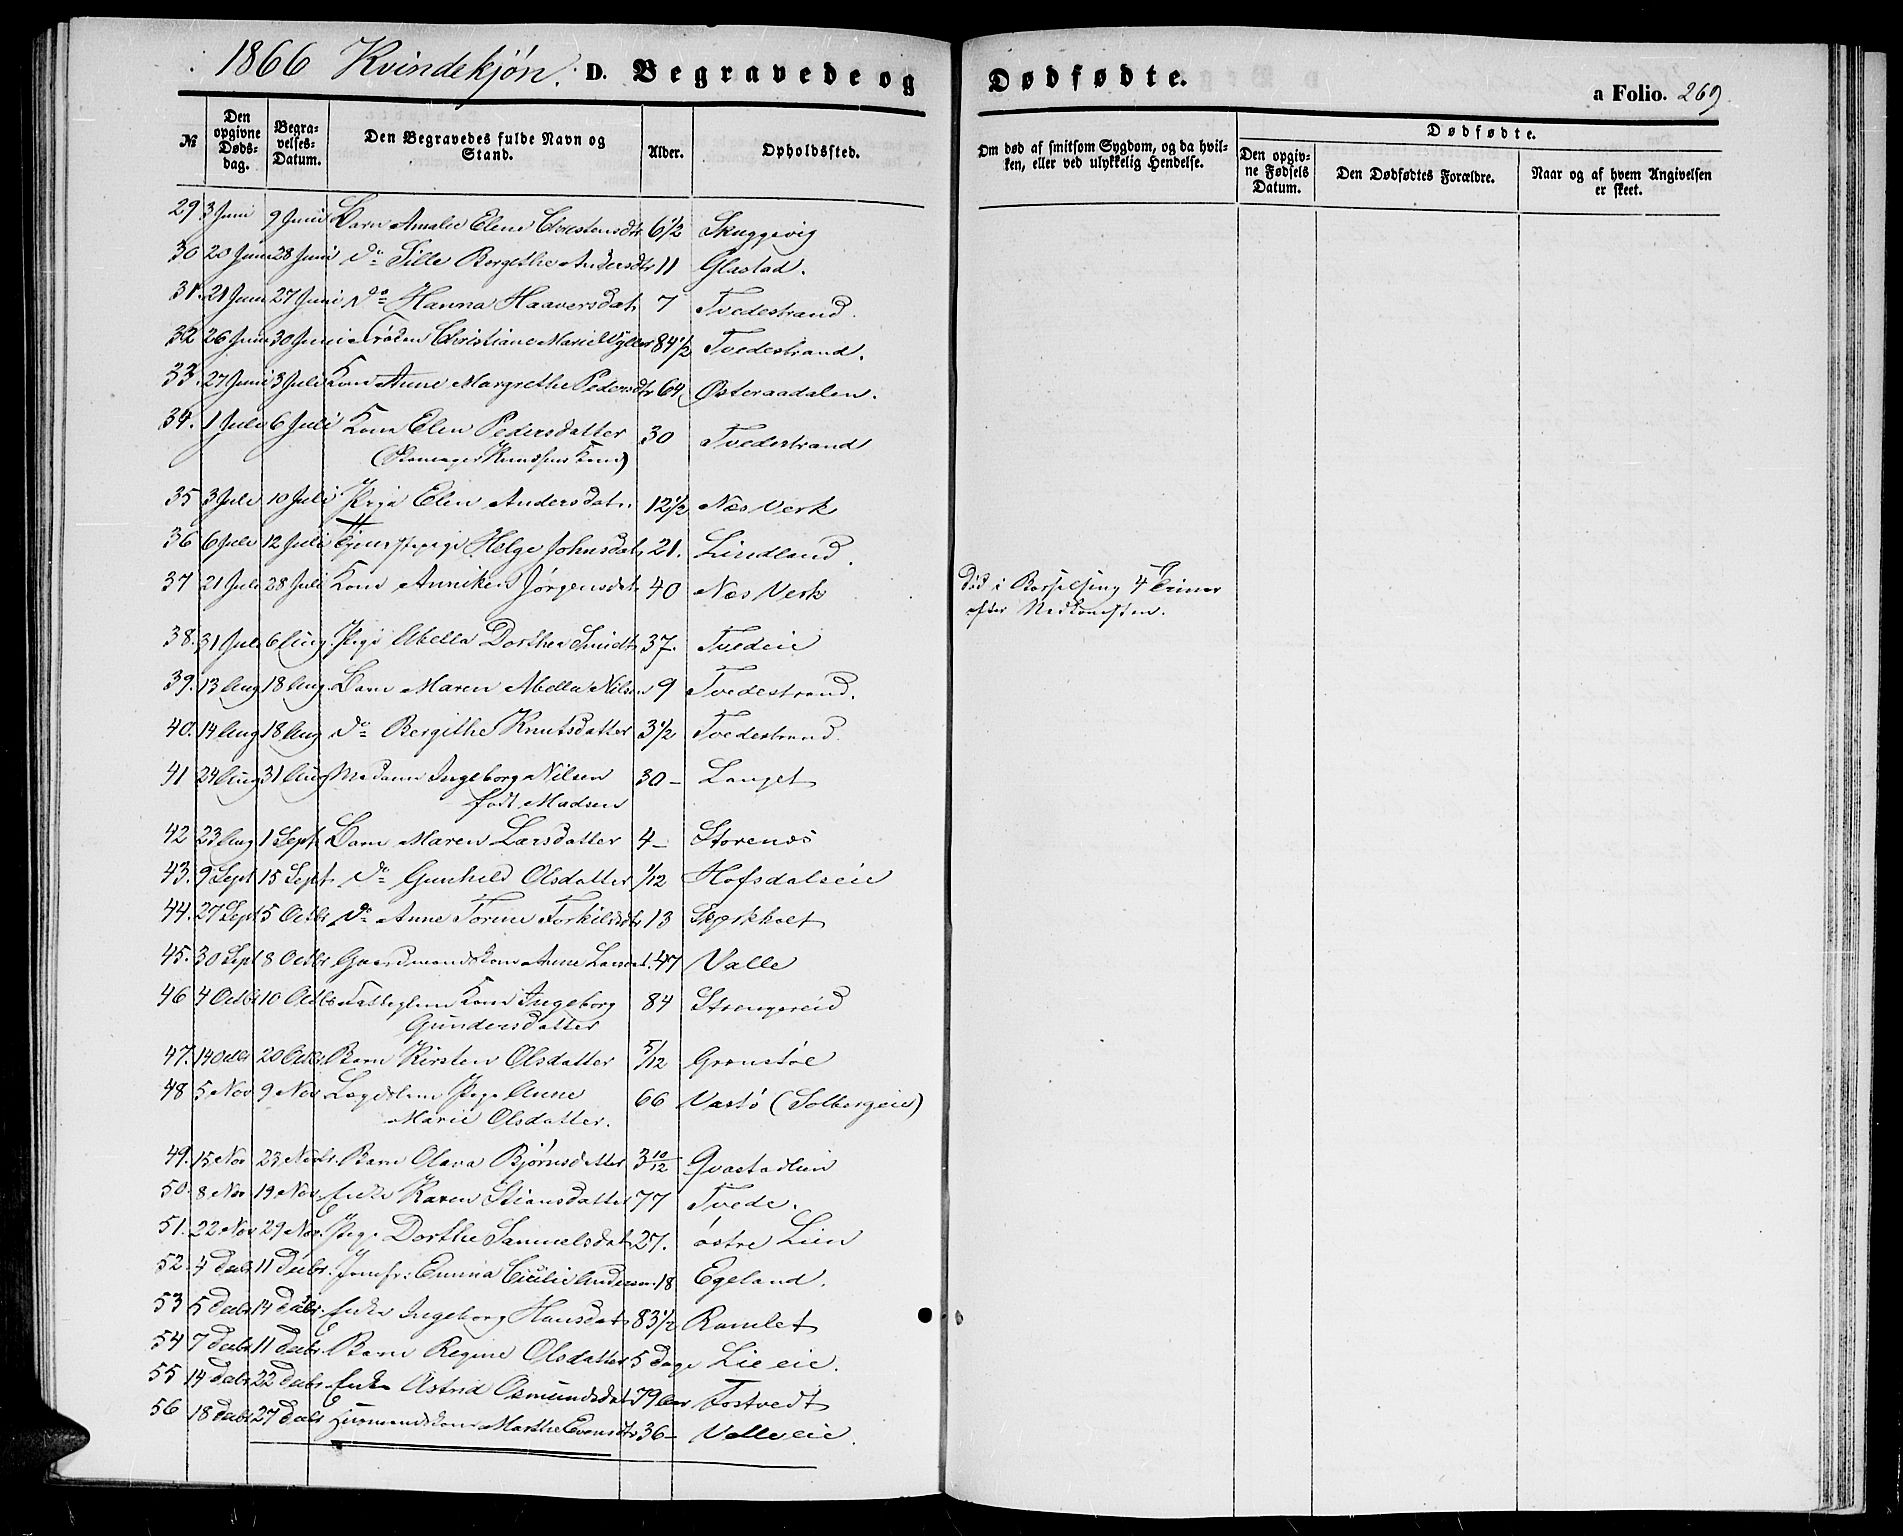 1866 Kvindekjøn. D. Begravede og Dødfødte. a Folio. 269.
№ Den opgivne Døds-dag. Begra-velses-Datum. Den Begravedes fulde Navn og Stand. Alder. Opholdssted. Om død af smitsom Sygdom, og da hvil-ken, eller ved ulykkelig Hendelse. Dødfødte. Den opgiv-ne Fødsels Datum. Den Dødfødtes Forældre. Naar og af hvem Angivelsen er skeet.
29 3 Juni 9 Juni Barn Amalie Elene Christensdtr 6 1/2 Skuggevig
30 20 Juni 28 Juni do Sille Bergethe Andersdtr 11 Glastad.
31. 21 Juni 27 Juni do Hanna Haaversdatr 7 Tvedestrand.
32 26 Juni 30 Juni Frøken Christiane Marie 84 1/2 Tvedestrand.
33. 27 Juni 3 Juli Kone Anne Margrethe Pedersdtr 64 Østeraadalen.
34. 1 Juli 6 Juli Kone Elen Pedersdatter 30 Tvedestrand
(Skomager Knudsens Kone)
35 3 Juli 10 Juli Pige Elen Andersdatr. 12 1/2 Næs Verk
36 6 Juli 12 Juli Tjenestepige Helge Johnsdatr 21. Lindland.
37 21 Juli 28 Juli Kone Anniken Jørgensdatr 40 Næs Verk Død i Barselseng 4 Timer
efter Nedkomsten.
38. 31 Juli 6 Aug. Pige Abella Dorthea Smidt 37. Tvedeie
39. 13 Aug 18 Aug. Barn Maren Abella Nilsen 9 Tvedestrand.
40. 14 Aug 18 Aug do Bergithe Knutsdatter 3 1/2 Tvedestrand.
41 24 Aug 31 Aug Madame Ingeborg Nilsen 30 – Langet
født Madsen
42 23 Aug 1 Sept. Barn Maren Larsdatter 4 – Storenæs
43. 9 Sept 15 Sept. do Gunhild Olsdatter 1/12 Hofsdalseie
44. 27 Sept 5 Octbr do Anne Torine Torkildsdtr 13
45. 30 Sept 8 Octbr Gaardmandskone Anne Larsdt. 47 Valle
46 4 Octbr 10 Octbr Fattiglem Kone Ingeborg 84 Strengereid
Gundersdatter
47. 14 Octbr 20 Octbr. Barn Kirsten Olsdatter 5/12 Grønstøe
48 5 Nov 9 Nov Lægdslem Pige Anne 66 Vastø (Solbergeie)
Marie Olsdatter.
49. 15 Nov 23 Novbr. Barn Olava Bjørnsdatter 3 10/12 Qvastadlien
50. 8 Nov 19 Nov. Enke Karen Stiansdatter 77 Tvede.
51. 22 Nov 29 Nov. Pige Dorthe Samuelsdatr 27. østre Lien
52. 4 Decbr 11 Decbr. Jomfr: Emma Cicilie Andersen. 18 Egeland.
53 5 Decbr 14 Decbr. Enke Ingeborg Hansdatr 83 1/2 Ramlet
54 7 Decbr 11 Decbr. Barn Regine Olsdatter 5 Dage Lieeie.
55 14 Decbr 22 Decbr. Enke Astrid Osmundsdatr 79 Aar Fostvedt
56 18 Decbr 27 Decbr Husmandskone Marthe Evensdtr 36 – Valleeie.